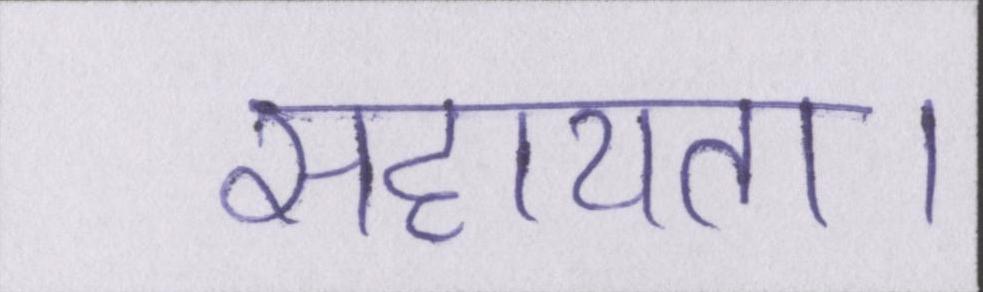 सहायता।